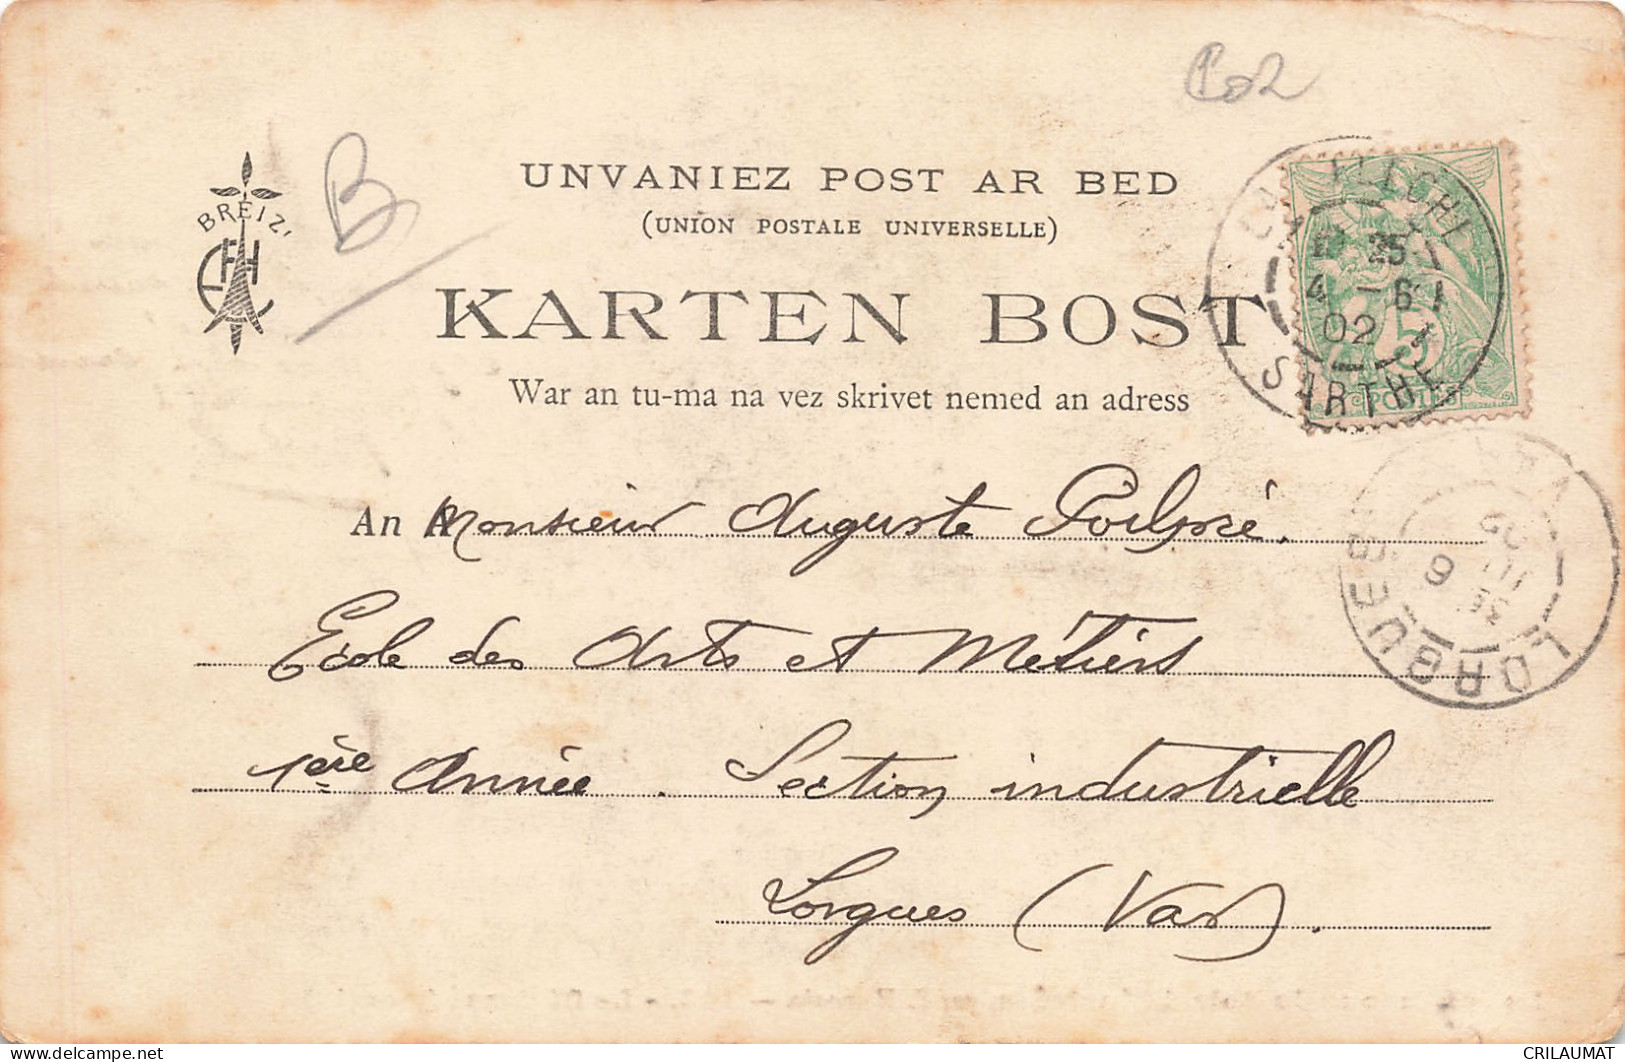 BREIZ
UNVANIEZ POST AR BED
(UNION POSTALE UNIVERSELLE)
KARTEN BOST
War an tu-ma na vez skrivet nemed an adress
B
25
4 - 6
02
SARTHE
5
POSTES
An Monsieur Auguste
Ecole des Arts et Métiers
1ère Année. Section industrielle
Lorgues (Var).
LORGUES
CRILAUMAT